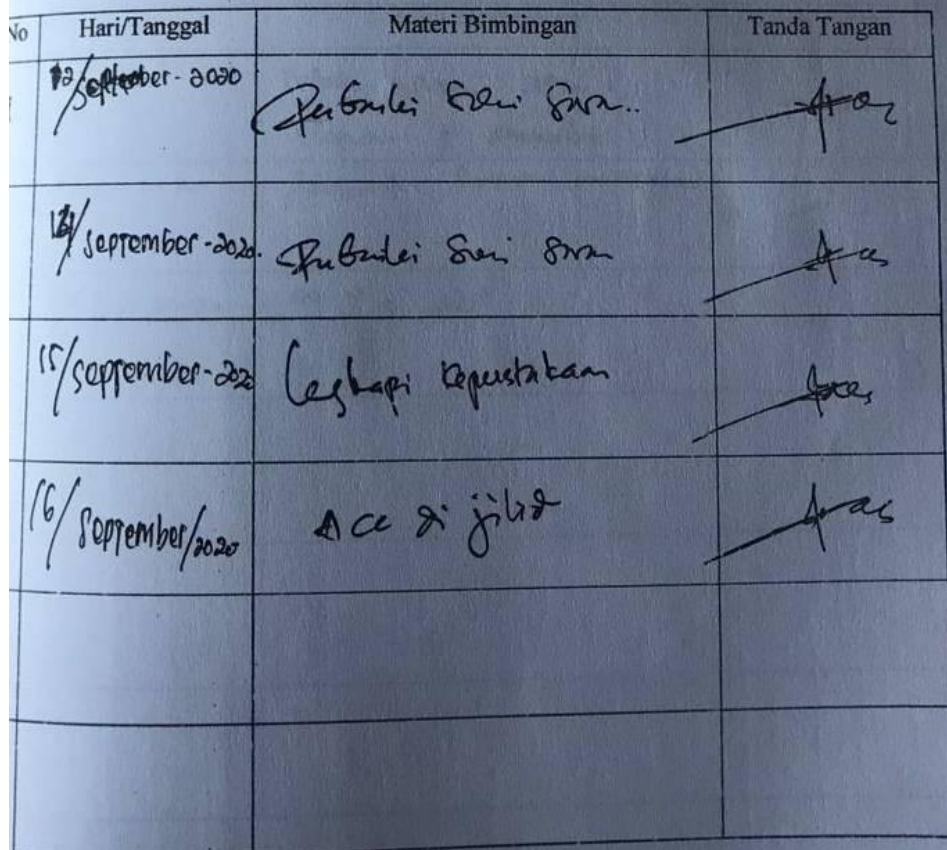 No Hari/Tanggal Materi Bimbingan Tanda Tangan
12/September-2020 Perbaiki Sesuai Saran..
/September-2020. Perbaiki Sesuai Saran
15/September-2020 Lengkapi Kepustakaan
16/September/2020 Acc di jilid